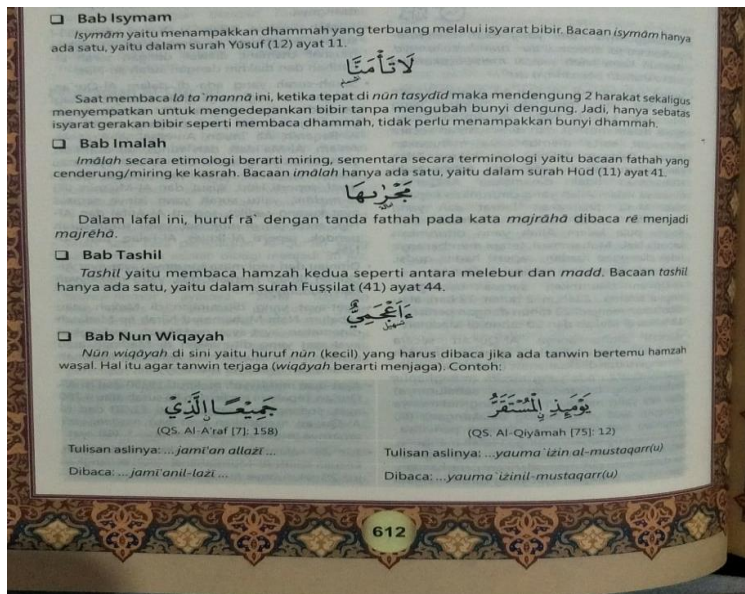 ❑ Bab Isymam
Isymām yaitu menampakkan dhammah yang terbuang melalui isyarat bibir. Bacaan isymām hanya
ada satu, yaitu dalam surah Yūsuf (12) ayat 11.
لَا تَأْمَ۫نَّا
Saat membaca lā ta`mannā ini, ketika tepat di nūn tasydīd maka mendengung 2 harakat sekaligus
menyempatkan untuk mengedepankan bibir tanpa mengubah bunyi dengung. Jadi, hanya sebatas
isyarat gerakan bibir seperti membaca dhammah, tidak perlu menampakkan bunyi dhammah.
❑ Bab Imalah
Imālah secara etimologi berarti miring, sementara secara terminologi yaitu bacaan fathah yang
cenderung/miring ke kasrah. Bacaan imālah hanya ada satu, yaitu dalam surah Hūd (11) ayat 41.
مَجْرٰىهَا
Dalam lafal ini, huruf rā` dengan tanda fathah pada kata majrāhā dibaca rē menjadi
majrēhā.
❑ Bab Tashil
Tashīl yaitu membaca hamzah kedua seperti antara melebur dan madd. Bacaan tashīl
hanya ada satu, yaitu dalam surah Fuṣṣilat (41) ayat 44.
ءَاَعْجَمِيٌّ
تسهيل
❑ Bab Nun Wiqayah
Nūn wiqāyah di sini yaitu huruf nūn (kecil) yang harus dibaca jika ada tanwin bertemu hamzah
waṣal. Hal itu agar tanwin terjaga (wiqāyah berarti menjaga). Contoh:
جَمِيْعًا ۨالَّذِيْ
(QS. Al-A'raf [7]: 158)
Tulisan aslinya: ... jamī'an allażī ...
Dibaca: ... jamī'anil-lażī ...
يَوْمَىِٕذِ ۨالْمُسْتَقَرُّ
(QS. Al-Qiyāmah [75]: 12)
Tulisan aslinya: ...yauma`iżin al-mustaqarr(u)
Dibaca: ...yauma`iżinil-mustaqarr(u)
612